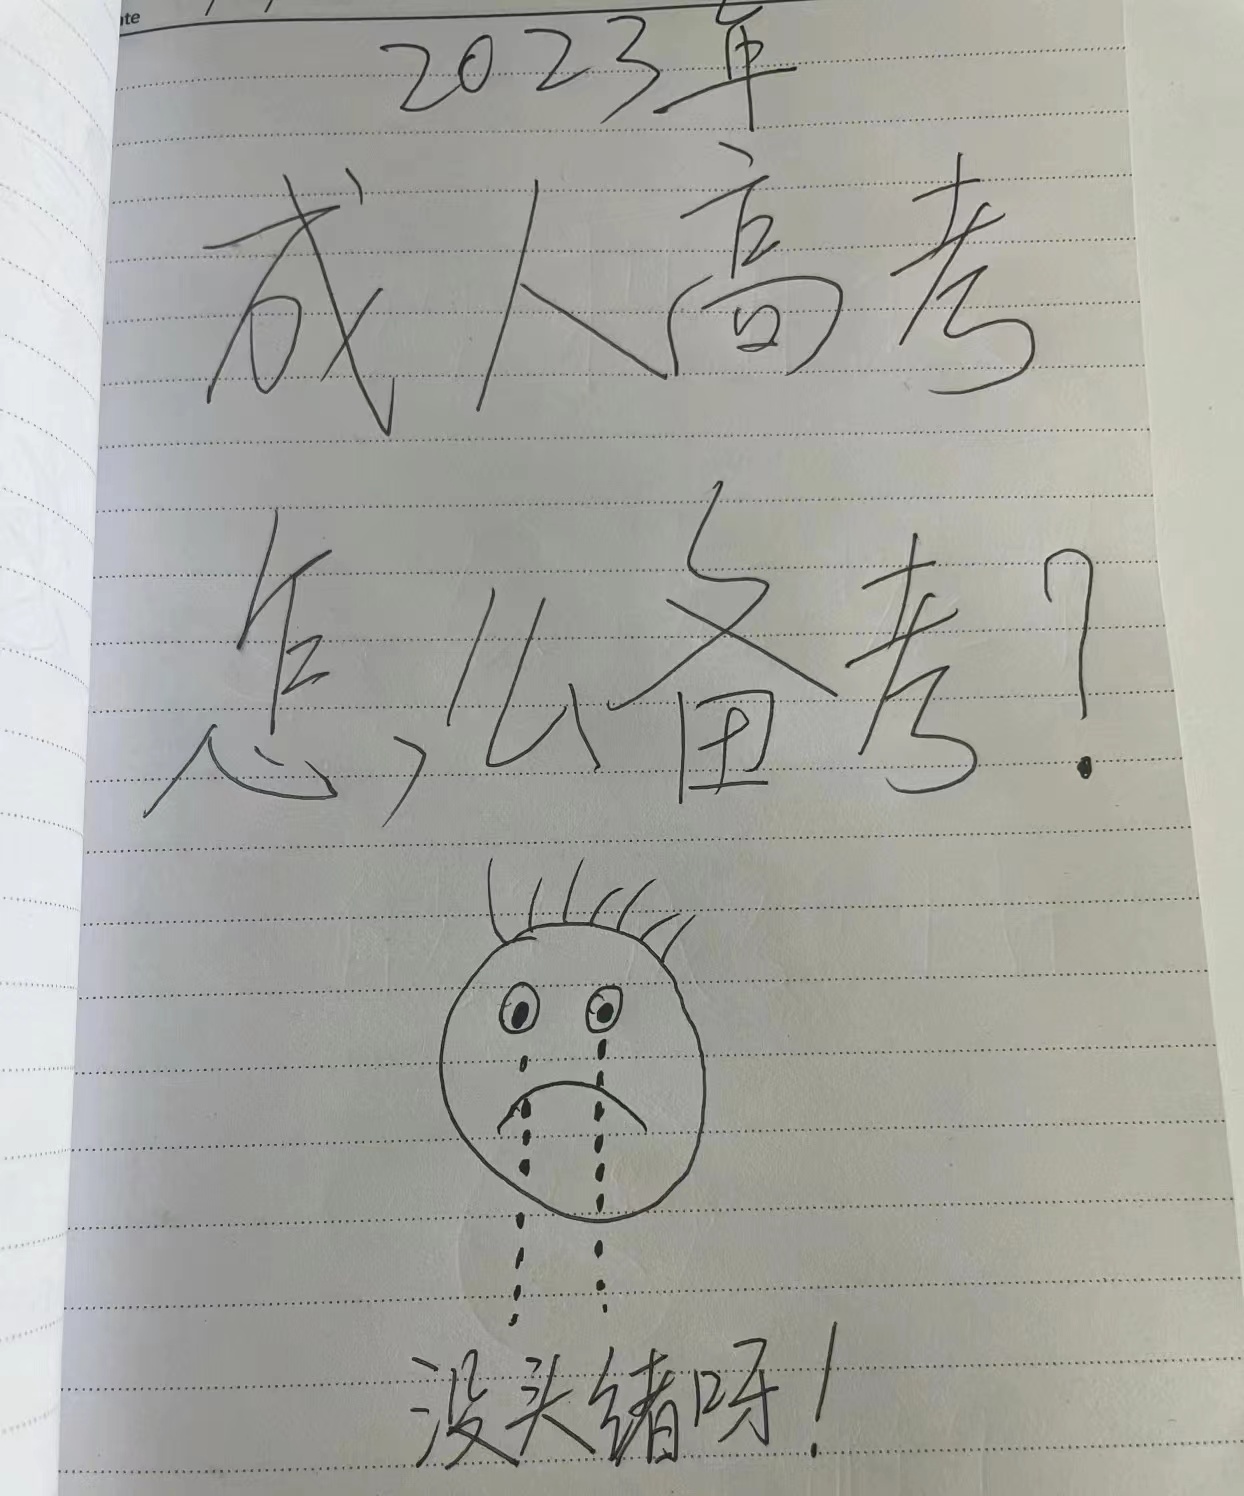 2023年
成人高考
怎么备考?
没头绪呀!